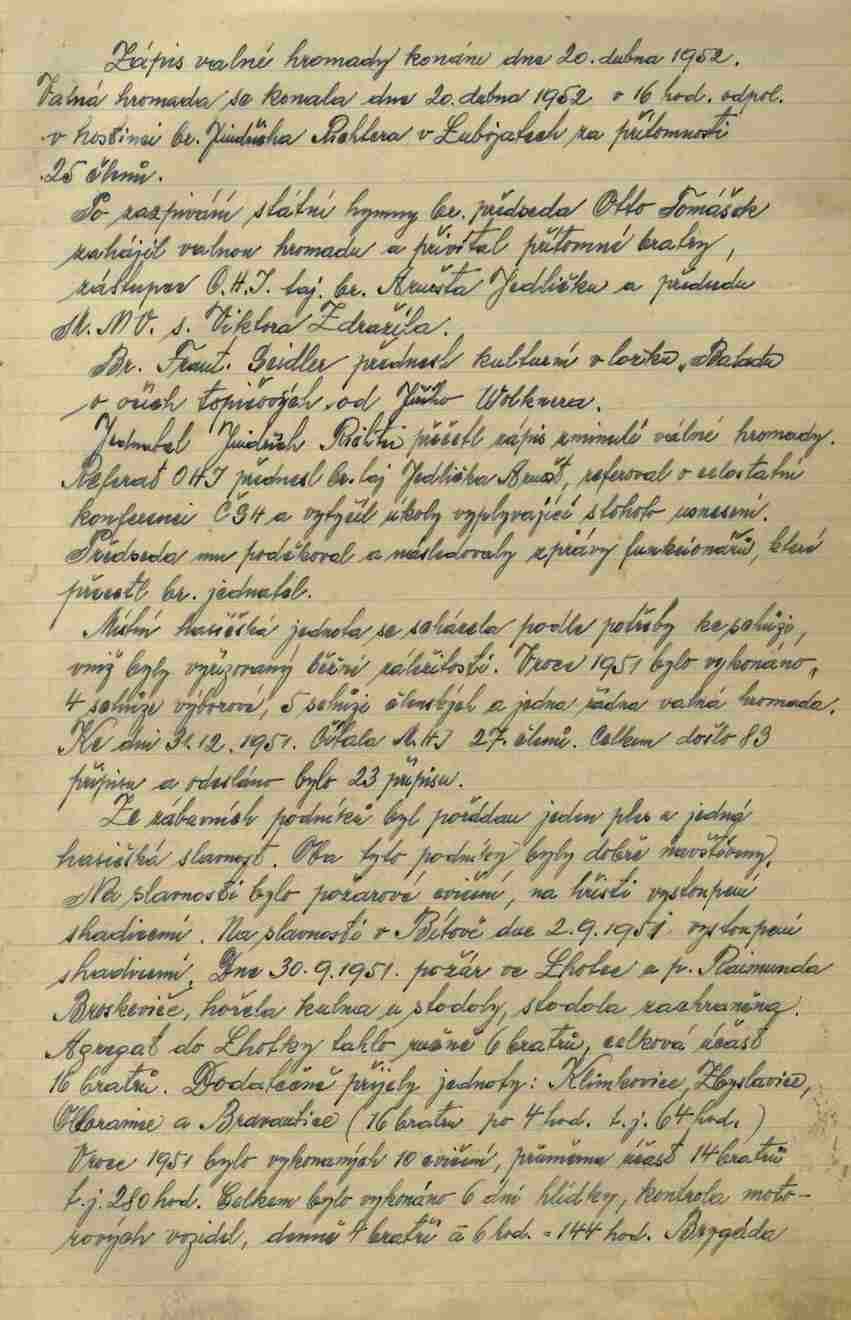 Zápis valné hromady konáne dne 20. dubna 1952.
Valná hromada se konala dne 20. dubna 1952 v 16 hod. odpol.
v hostinci br. Jindřicha Richtera v Lubojatech za přítomnosti
25 členů.
Po zazpívání státní hymny br. předseda Otto Tomášek
zahájil valnou hromadu a přivítal přítomné bratry,
zástupce O.H.J. taj. br. Arnošta Jedličku a předsedu
M.N.V. s. Viktora Zdražila.
Br. Frant. Seidler přednesl kulturní vložku „Balada
o očích topičových od Jiřího Wolkera.
Jednatel Jindřich Richtr přečetl zápis zminulé válné hromady.
Referat OHJ přednesl br. taj Jedlička Arnošt, referoval o celostatní
konferenci ČSH a vytyčil úkoly vyplyvající stohoto usnesení.
Předseda mu poděkoval a následovaly zprávy funkcionářů, které
přečetl br. jednatel.
Místní hasičská jednota se scházela podle potřeby ke schůzi,
vníž byly vyřizovaný běžné záležitosti. Vroce 1951 bylo vykonáno,
4 schůze výborové, 5 schůzi členských a jedna řádna valná hromada.
Ke dni 31.12.1951. Čítala M.HJ 27. členů. Celkem došlo 83
přípisu a odesláno bylo 23 přípisu.
Ze zábavních podniků byl pořádan jeden ples a jedná
hasičská slavnost. Oba tyto podniky byly dobře navštíveny.
Na slavnosti bylo požarové cvičení, na hřišti vystoupení
shadicemi. Na slavnosti v Bítově dne 2.9.1951 vystoupení
shadicemi. Dne 30.9.1951. požár ve Lhotce u p. Raimunda
Broskeviče, hořela kulna u stodoly, stodola zachraněna.
Agregat do Lhotky tahlo ručně 6 bratrů, celková účast
16 bratrů. Dodatečně přijely jednoty: Klimkovice, Zbyslavice,
Olbramice a Bravantice (16 bratru po 4 hod. t.j. 64 hod.)
Vroce 1951 bylo vykonaných 10 cvičení, průměrna účast 14 bratrů
t.j. 280 hod. Celkem bylo vykonáno 6 dní hlídky, kontrola moto-
rových vozidel, denně 4 bratři á 6 hod. = 144 hod. Brygáda